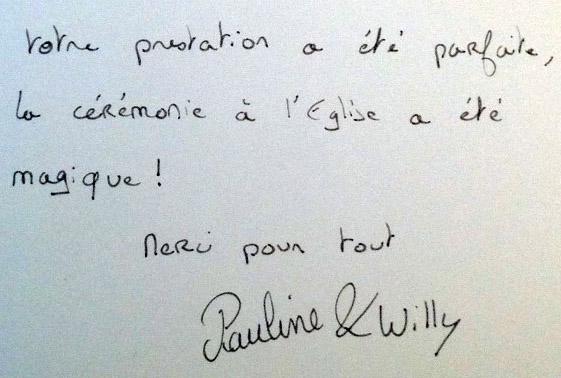 Votre prestation a été parfaite,
la cérémonie à l'Eglise a été
magique !
Merci pour tout
Pauline & Willy